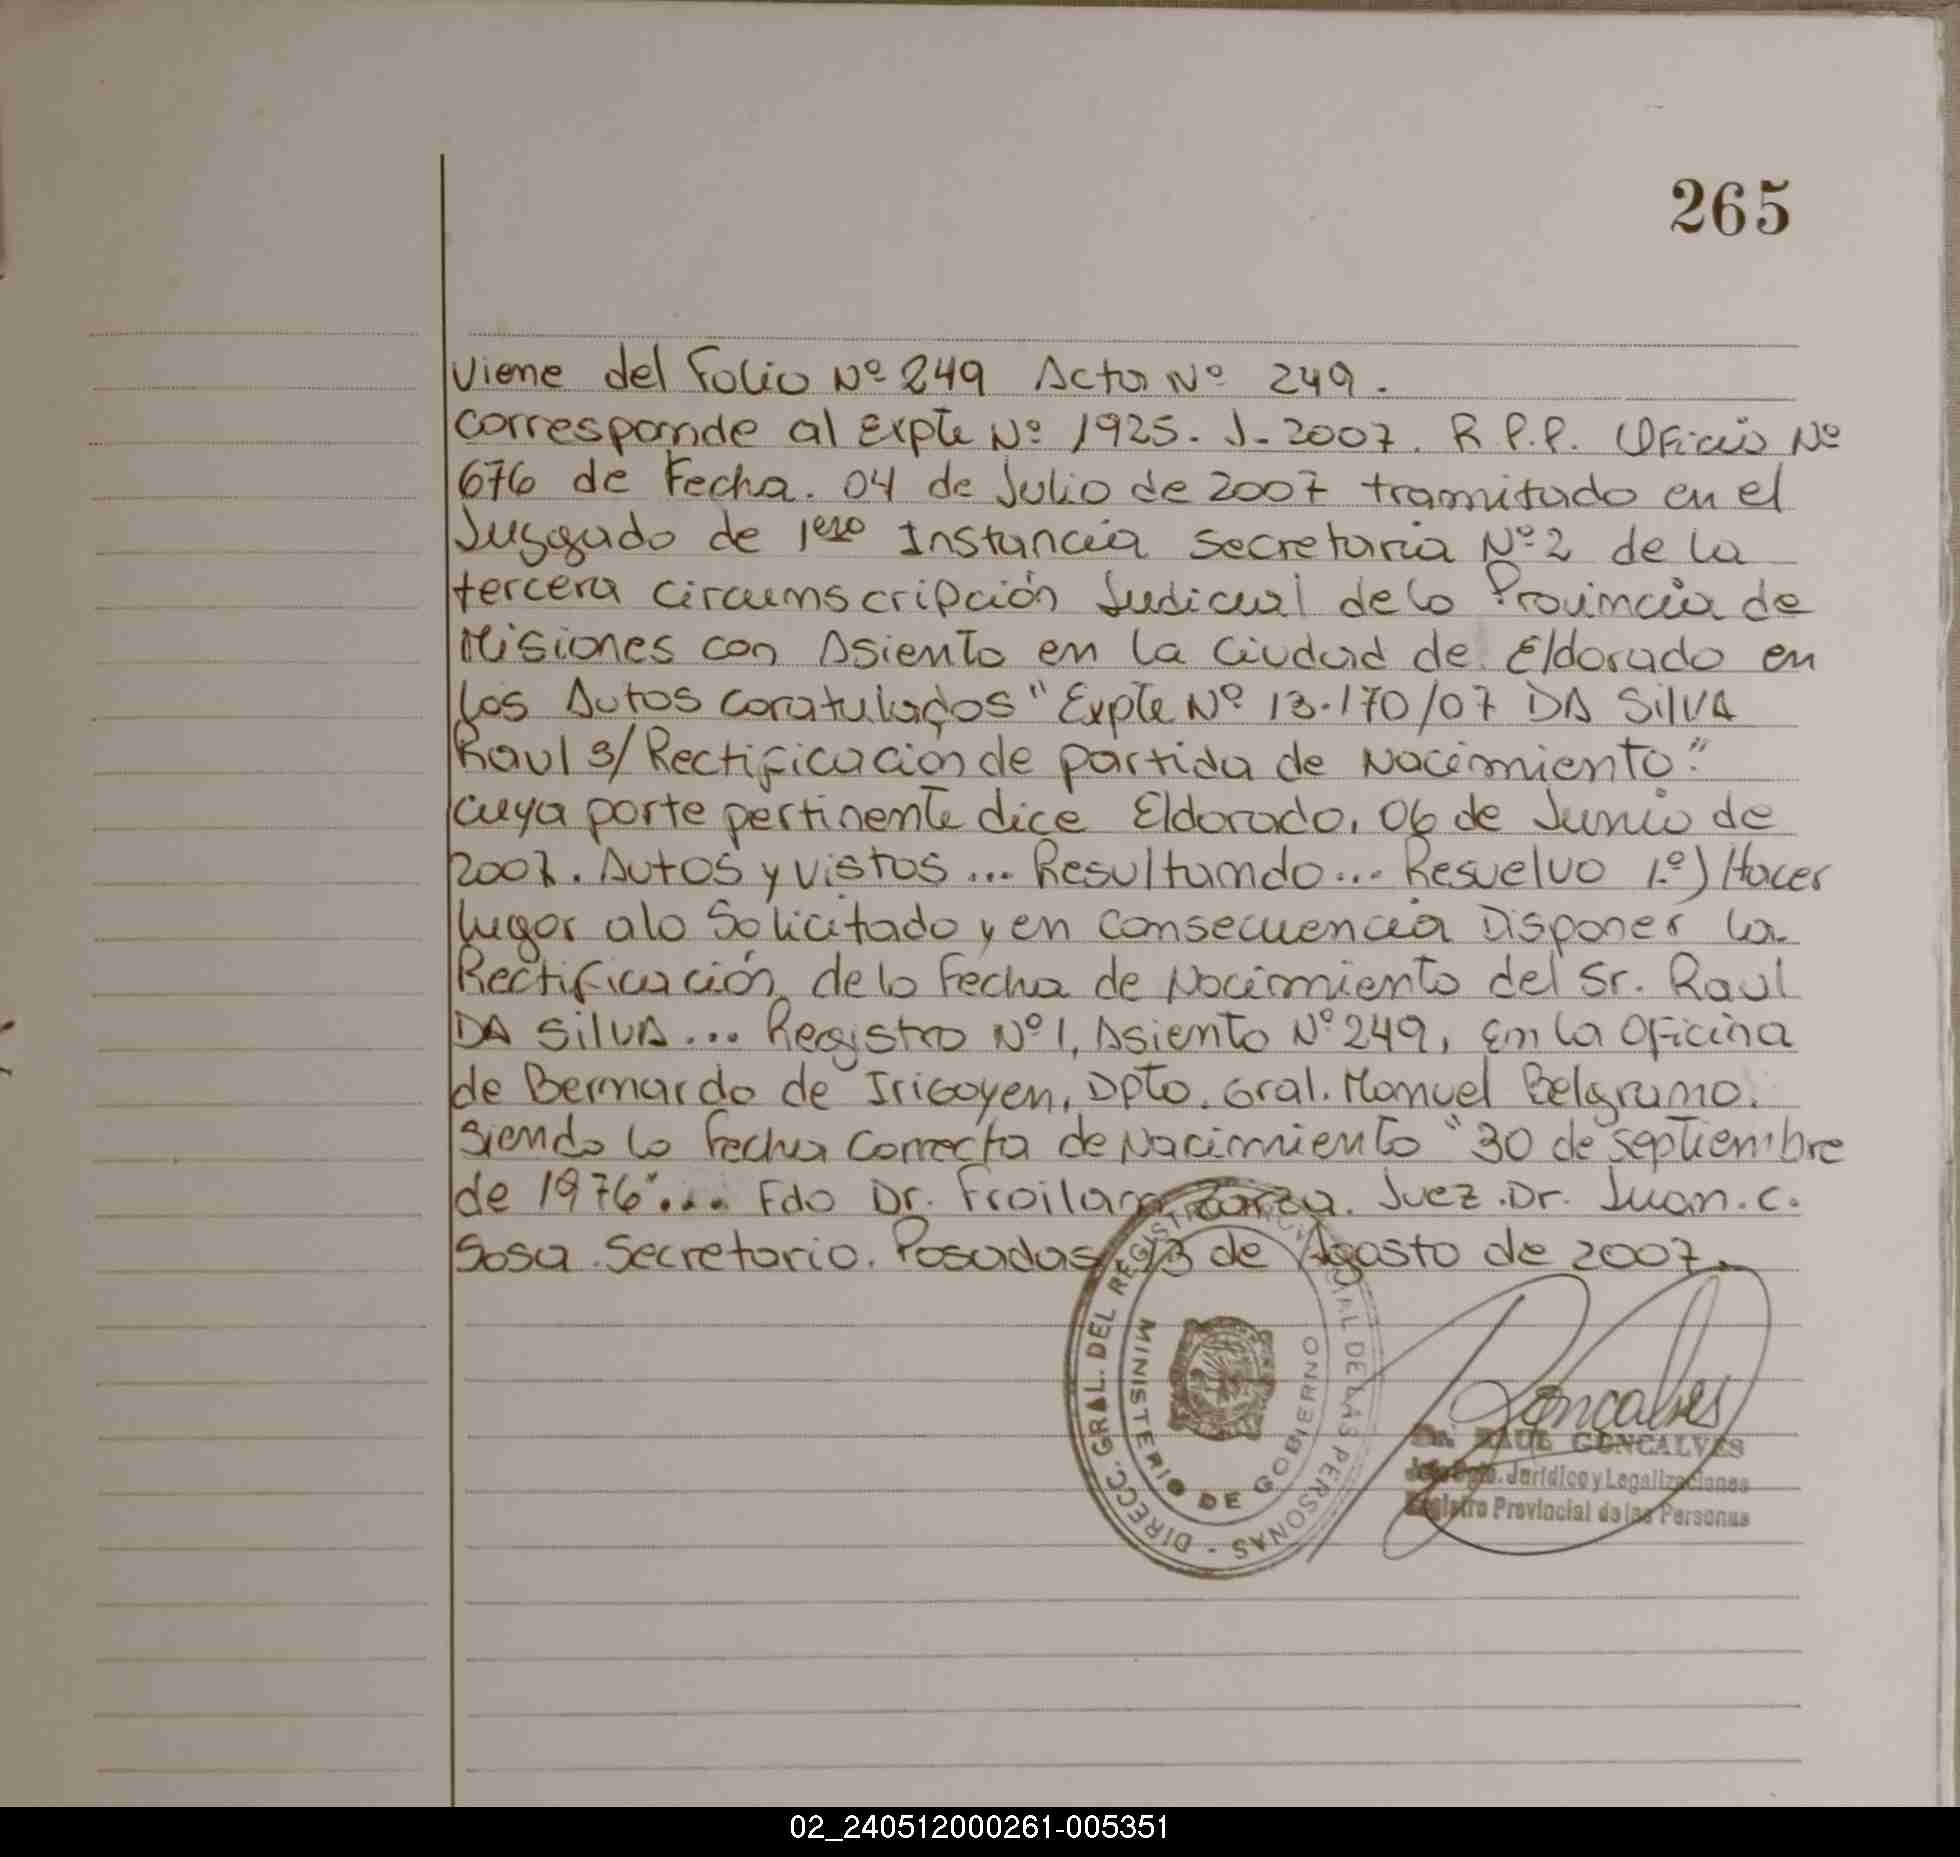 265
Viene del Folio Nº 249 Acta Nº 249.
Corresponde al Expte Nº 1925. J-2007. R.P.P. Oficio Nº
676 de Fecha. 04 de Julio de 2007 tramitado en el
Juzgado de 1era Instancia Secretaria Nº 2 de la
tercera circumscripción Judicial de la Provincia de
Misiones con Asiento en la Ciudad de Eldorado en
los Autos caratulados "Expte Nº 13.170/07 DA SILVA
Raul s/Rectificación de partida de Nacimiento."
cuya parte pertinente dice Eldorado, 06 de Junio de
2007. Autos y vistos... Resultando... Resuelvo 1º) Hacer
lugar a lo Solicitado y en Consecuencia Disponer la
Rectificación de la Fecha de Nacimiento del Sr. Raul
DA SILVA... Registro Nº 1, Asiento Nº 249, En la Oficina
de Bernardo de Irigoyen, Dpto. Gral. Manuel Belgrano.
Siendo la fecha Correcta de Nacimiento "30 de Septiembre
de 1976"... Fdo Dr. Froilan Zarza. Juez. Dr. Juan. C.
Sosa. Secretario. Posadas 13 de Agosto de 2007.
DIRECC. GRAL. DEL REGISTRO PROVINCIAL DE LAS PERSONAS -
MINISTERIO DE GOBIERNO
Goncalves
Dr. RAUL GONCALVES
Jefe Dpto. Jurídico y Legalizaciones
Registro Provincial de las Personas
02_240512000261-005351